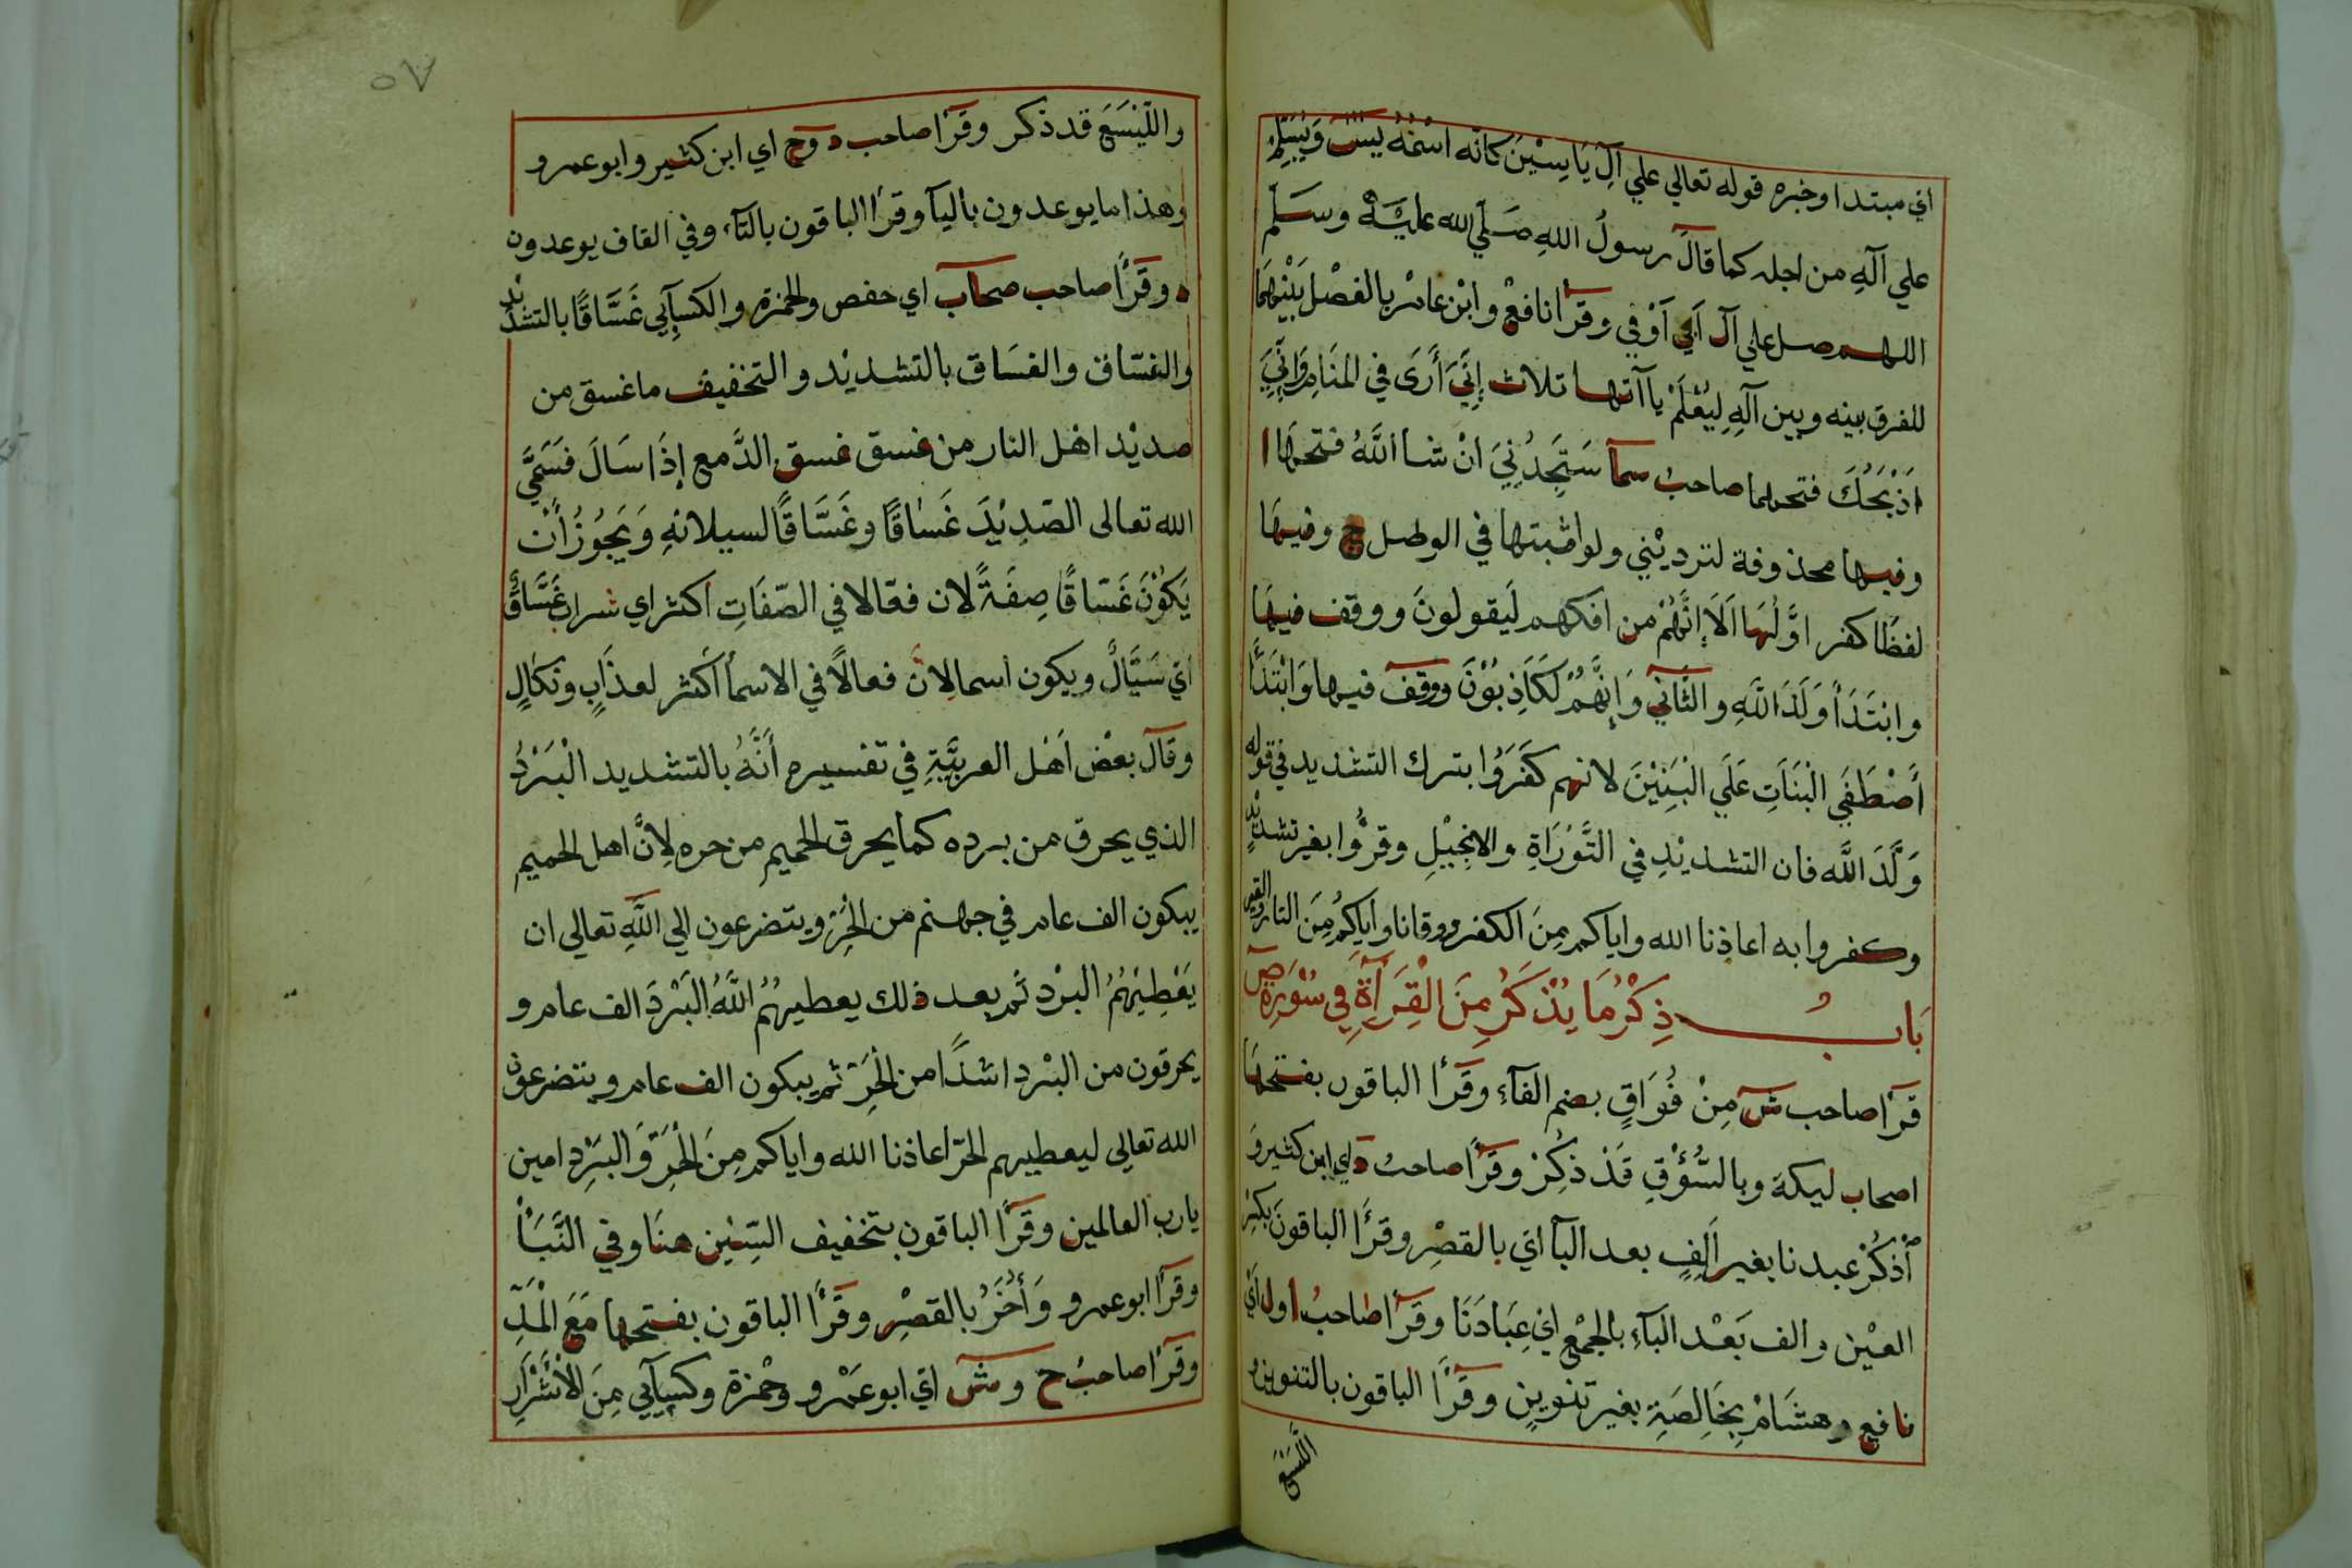 اي مبتدا وخبره قوله تعالي علي آلِ يَاسِيْنَ كانّه اسْمُهُ يسٓ وَيُسَلِّمُ
علي آلهِ من اجله كما قالَ رسولُ اللهِ صَلّي الله عليْهِ وسَلّم
اللهم صل علي آل اَبي اَوْفي وقرَأ نافعْ وابْن عامرْ بالفصْل بَيْنهمَا
للفرق بينه وبين آلهِ لِيُعْلَمْ يا آتها ثلاث إنّيَ أَرَى في المنَامِ وَانّيَ
اَذْبَحُكَ فتحهما صاحبُ سما سَتَجِدُنِيَ انْ شا اللَّهُ فتحهَا ا
وفيها محذوفة لترديْني ولو اثبتها في الوصل ج وفيهَا
لفظًا كفر اوَّلُهَا اَلَا إنَّهُمْ من افكهم لَيقولونَ ووقف فيهَا
وابْتَدَأ وَلَدَ اللَّهِ والثَّاني وَإنَّهُمْ لَكَاذِبُوْنَ ووقفَ فيها وَابْتَدَأَ
أَصْطَفَي الْبَنَاتِ عَلَي الْبَنِيْنَ لانهم كفَرَوُا بترك التشديد في قوله
وَلَّدَ اللَّه فان التشديْدِ في التَّوْرَاةِ والانجِيْلِ وقرَؤُا بغير تشديْدٍ
وكفروا به اعاذنا الله واياكم مِنَ الكفر ووقانا واياكُمْ مِنَ النار والقبر
بَابُ ذِكْرُ مَا يُذْكَرُ مِنَ الْقِرَآةِ فِي سُوْرَةِ صٓ
قرَأ صاحب ش مِنْ فُوَاقٍ بضم الفآءِ وقَرَأ الباقون بفتحهَا
اصحاب ليكة وبالسُّؤْقِ قَدْ ذكِرْ وقرَأ صاحبُ د اي ابن كثير وَ
أذكُرْ عبدنا بغير اَلِفٍ بعد البآ اي بالقصْرِ وقرَأ الباقونَ بكسْرِ
العيْن والف بَعْد البآءِ بالجمْعِ اي عِبَادَنَا وقرَأ صاحبُ ا ول اَيْ
نافع وهشَامْ بِخَالِصَةِ بغير تنوينٍ وقَرَأ الباقون بالتنوين و
اللَّيْسَعَ
٥٧
واللَّيْسَعَ قد ذكر وقرَأ صاحب د وح اي ابن كثير وابو عمرو
وهذا ما يوعدون باليآ وقرَأ الباقون بالتآء وفي القاف يوعدون
د وقَرَأ صاحب صحاب اي حفص والحمزة والكسآئي غَسَّاقًا بالتشديْد
والغسّاق والغسَاق بالتشديْد والتخفيف ما غسق من
صديْد اهْل النار من غسق غسق الدَّمع إذَا سَالَ فسَمَّي
الله تعالى الصّدِيْدَ غَسَاقًا وغَسَّاقًا لسيلانهِ وَيَجُوْزُ أَنْ
يَكُوْنَ غَسّاقًا صِفَةً لان فعّالا في الصّفَاتِ اكثر اي شراب غَسَّاقٌ
اي سَيَّالٌ ويكون اسما لِانَّ فعالًا في الاسمأ اكثر لعذَابٍ ونكالٍ
وقالَ بعْض اَهْل العربيَّةِ في تفسيره أنَّهُ بالتشديد الْبَرْدُ
الذي يحرق من برده كما يحرق الحميم من حره لِانَّ اهل الحميم
يبكون الف عامر في جهنم من الحَرّ ويتضرعون الي اللَّهِ تعالي ان
يَعْطِيَهُمُ البرْد ثم بعد ذلك يعطيهُمُ اللَّهُ البَرْدَ الف عامر و
يحرقون من البرْد اشدًّا من الْحَرّ ثم يبكون الف عامر ويتضرعون
الله تعالي ليعطيهم الحرّ اعاذنا الله واياكم مِنَ الْحَرّ وَالبَرْدِ امين
يا رب العالمين وقَرَأ الباقون بتخفيف السِّيْن هنَا وفي النَّبَأْ
وقرَأ ابو عمرو وَأُخَرُ بالقصْرِ وقَرَأ الباقون بفتحها مَعَ الْمَدِّ
وقرَأ صاحبُ ح وش اي ابو عَمْرو وحْمزة وكسآئي مِنَ الْأَشْرَارِ